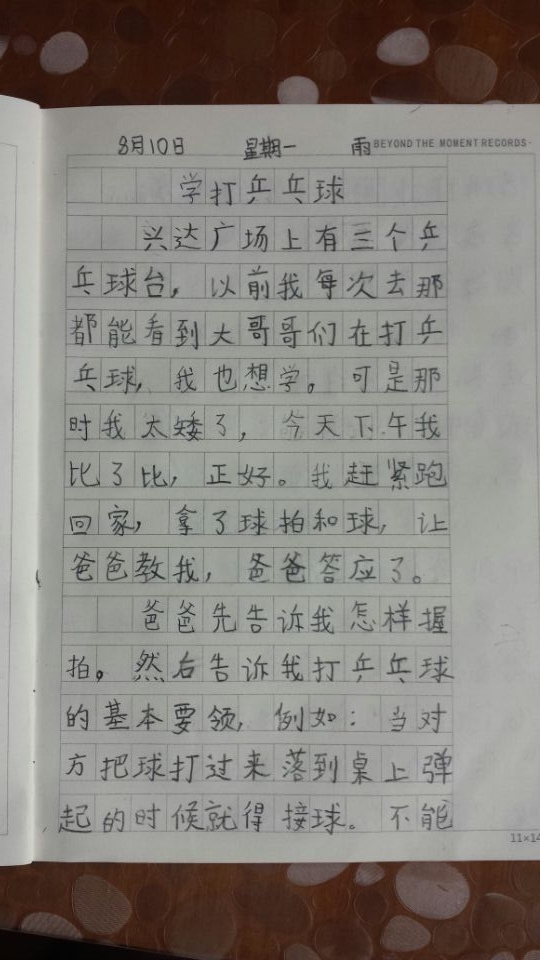 8月10日 星期一 雨 BEYOND THE MOMENT RECORDS·
学打乒乓球
兴达广场上有三个乒
乓球台，以前我每次去那
都能看到大哥哥们在打乒
乓球，我也想学。可是那
时我太矮了，今天下午我
比了比，正好。我赶紧跑
回家，拿了球拍和球，让
爸爸教我，爸爸答应了。
爸爸先告诉我怎样握
拍。然右告诉我打乒乓球
的基本要领，例如：当对
方把球打过来落到桌上弹
起的时候就得接球。不能
11×14